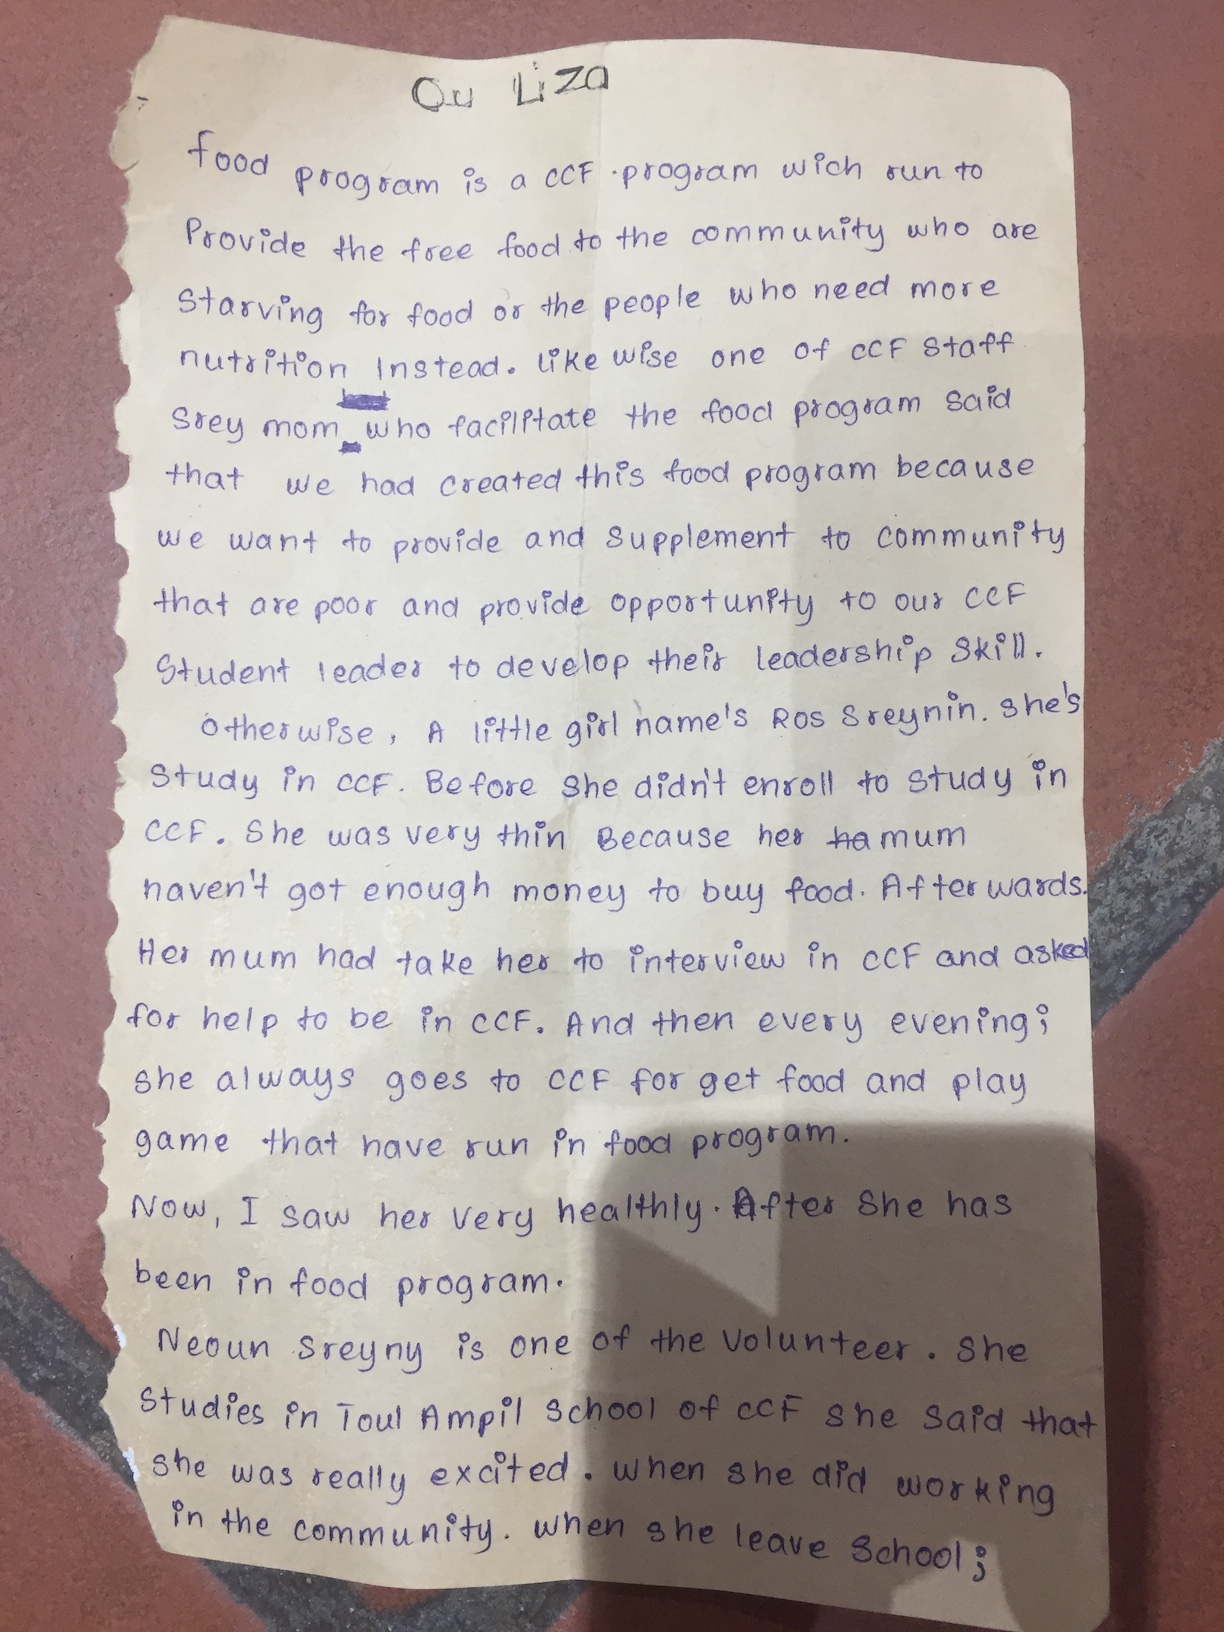 Ou Liza
food program is a CCF program wich run to
Provide the free food to the community who are
Starving for food or the people who need more
nutrition Instead. Like wise one of CCF Staff
Srey mom who facilitate the food program Said
that we had created this food program because
we want to provide and Supplement to community
that are poor and provide opportunity to our CCF
Student leader to develop their leadership Skill.
Otherwise, A little girl name's Ros Sreynin. She's
Study in CCF. Before She didn't enroll to study in
CCF. She was very thin Because her ha mum
haven't got enough money to buy food. After wards.
Her mum had take her to interview in CCF and asked
for help to be in CCF. And then every evening;
she always goes to CCF for get food and play
game that have run in food program.
Now, I saw her very healthly. After She has
been in food program.
Neoun Sreyny is one of the Volunteer. She
Studies in Toul Ampil School of CCF She Said that
she was really excited. When she did working
in the community. When she leave School;